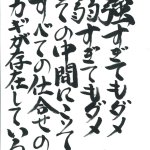 強すぎてもダメ
弱すぎてもダメ
その中間にこそ
すべての仕合せの
カギが存在している